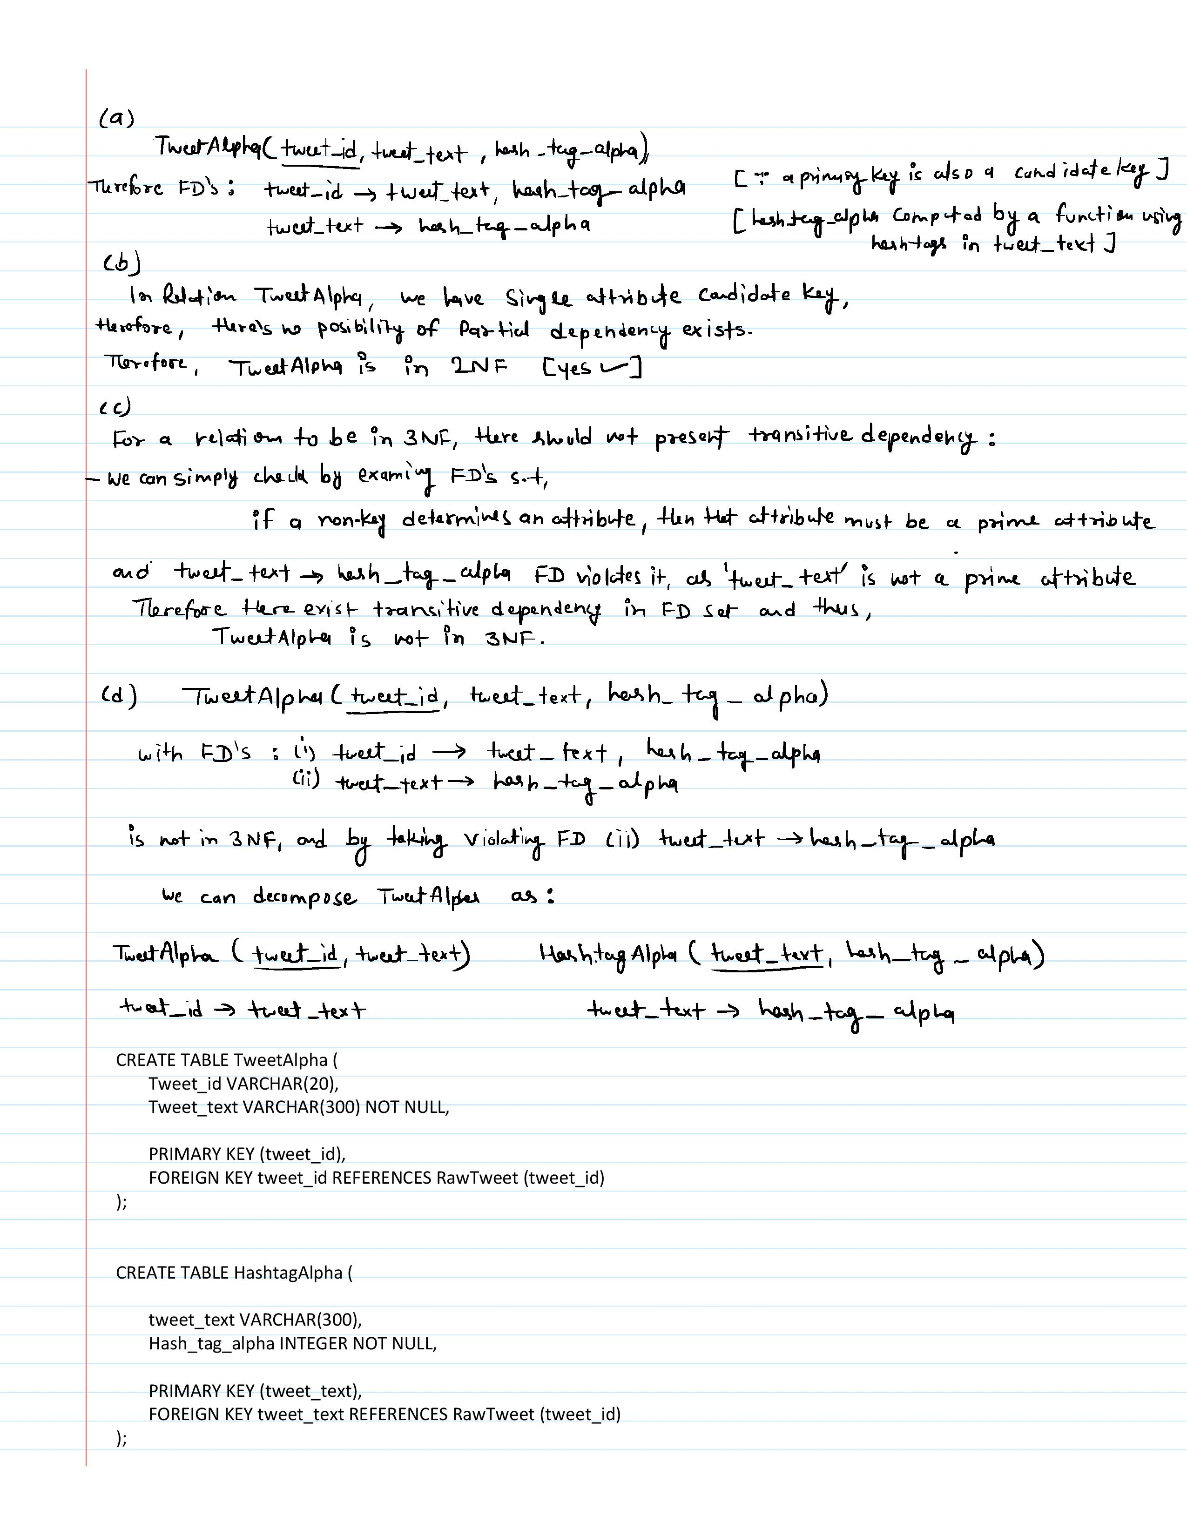 (a)
TweetAlpha( tweet_id, tweet_text, hash_tag_alpha)
Therefore FD's : tweet_id → tweet_text, hash_tag_alpha [ ∵ a primary key is also a candidate key ]
tweet_text → hash_tag_alpha [ hashtag_alpha computed by a function using
hashtags in tweet_text ]
(b)
In Relation TweetAlpha, we have Single attribute Candidate key,
therefore, there's no posibility of Partial dependency exists.
Therefore, TweetAlpha is in 2NF [yes ✓]
(c)
For a relation to be in 3NF, there should not present transitive dependency :
- We can simply check by examing FD's s.t,
if a non-key determines an attribute, then that attribute must be a prime attribute
and tweet_text → hash_tag_alpha FD violates it, as 'tweet_text' is not a prime attribute
Therefore there exist transitive dependency in FD set and thus,
TweetAlpha is not in 3NF.
(d) TweetAlpha ( tweet_id, tweet_text, hash_tag_alpha)
with FD's : (i) tweet_id → tweet_text, hash_tag_alpha
(ii) tweet_text → hash_tag_alpha
is not in 3NF, and by taking Violating FD (ii) tweet_text → hash_tag_alpha
we can decompose TweetAlpha as :
TweetAlpha ( tweet_id, tweet_text) HashtagAlpha ( tweet_text, hash_tag_alpha)
tweet_id → tweet_text tweet_text → hash_tag_alpha
CREATE TABLE TweetAlpha (
Tweet_id VARCHAR(20),
Tweet_text VARCHAR(300) NOT NULL,
PRIMARY KEY (tweet_id),
FOREIGN KEY tweet_id REFERENCES RawTweet (tweet_id)
);
CREATE TABLE HashtagAlpha (
tweet_text VARCHAR(300),
Hash_tag_alpha INTEGER NOT NULL,
PRIMARY KEY (tweet_text),
FOREIGN KEY tweet_text REFERENCES RawTweet (tweet_id)
);